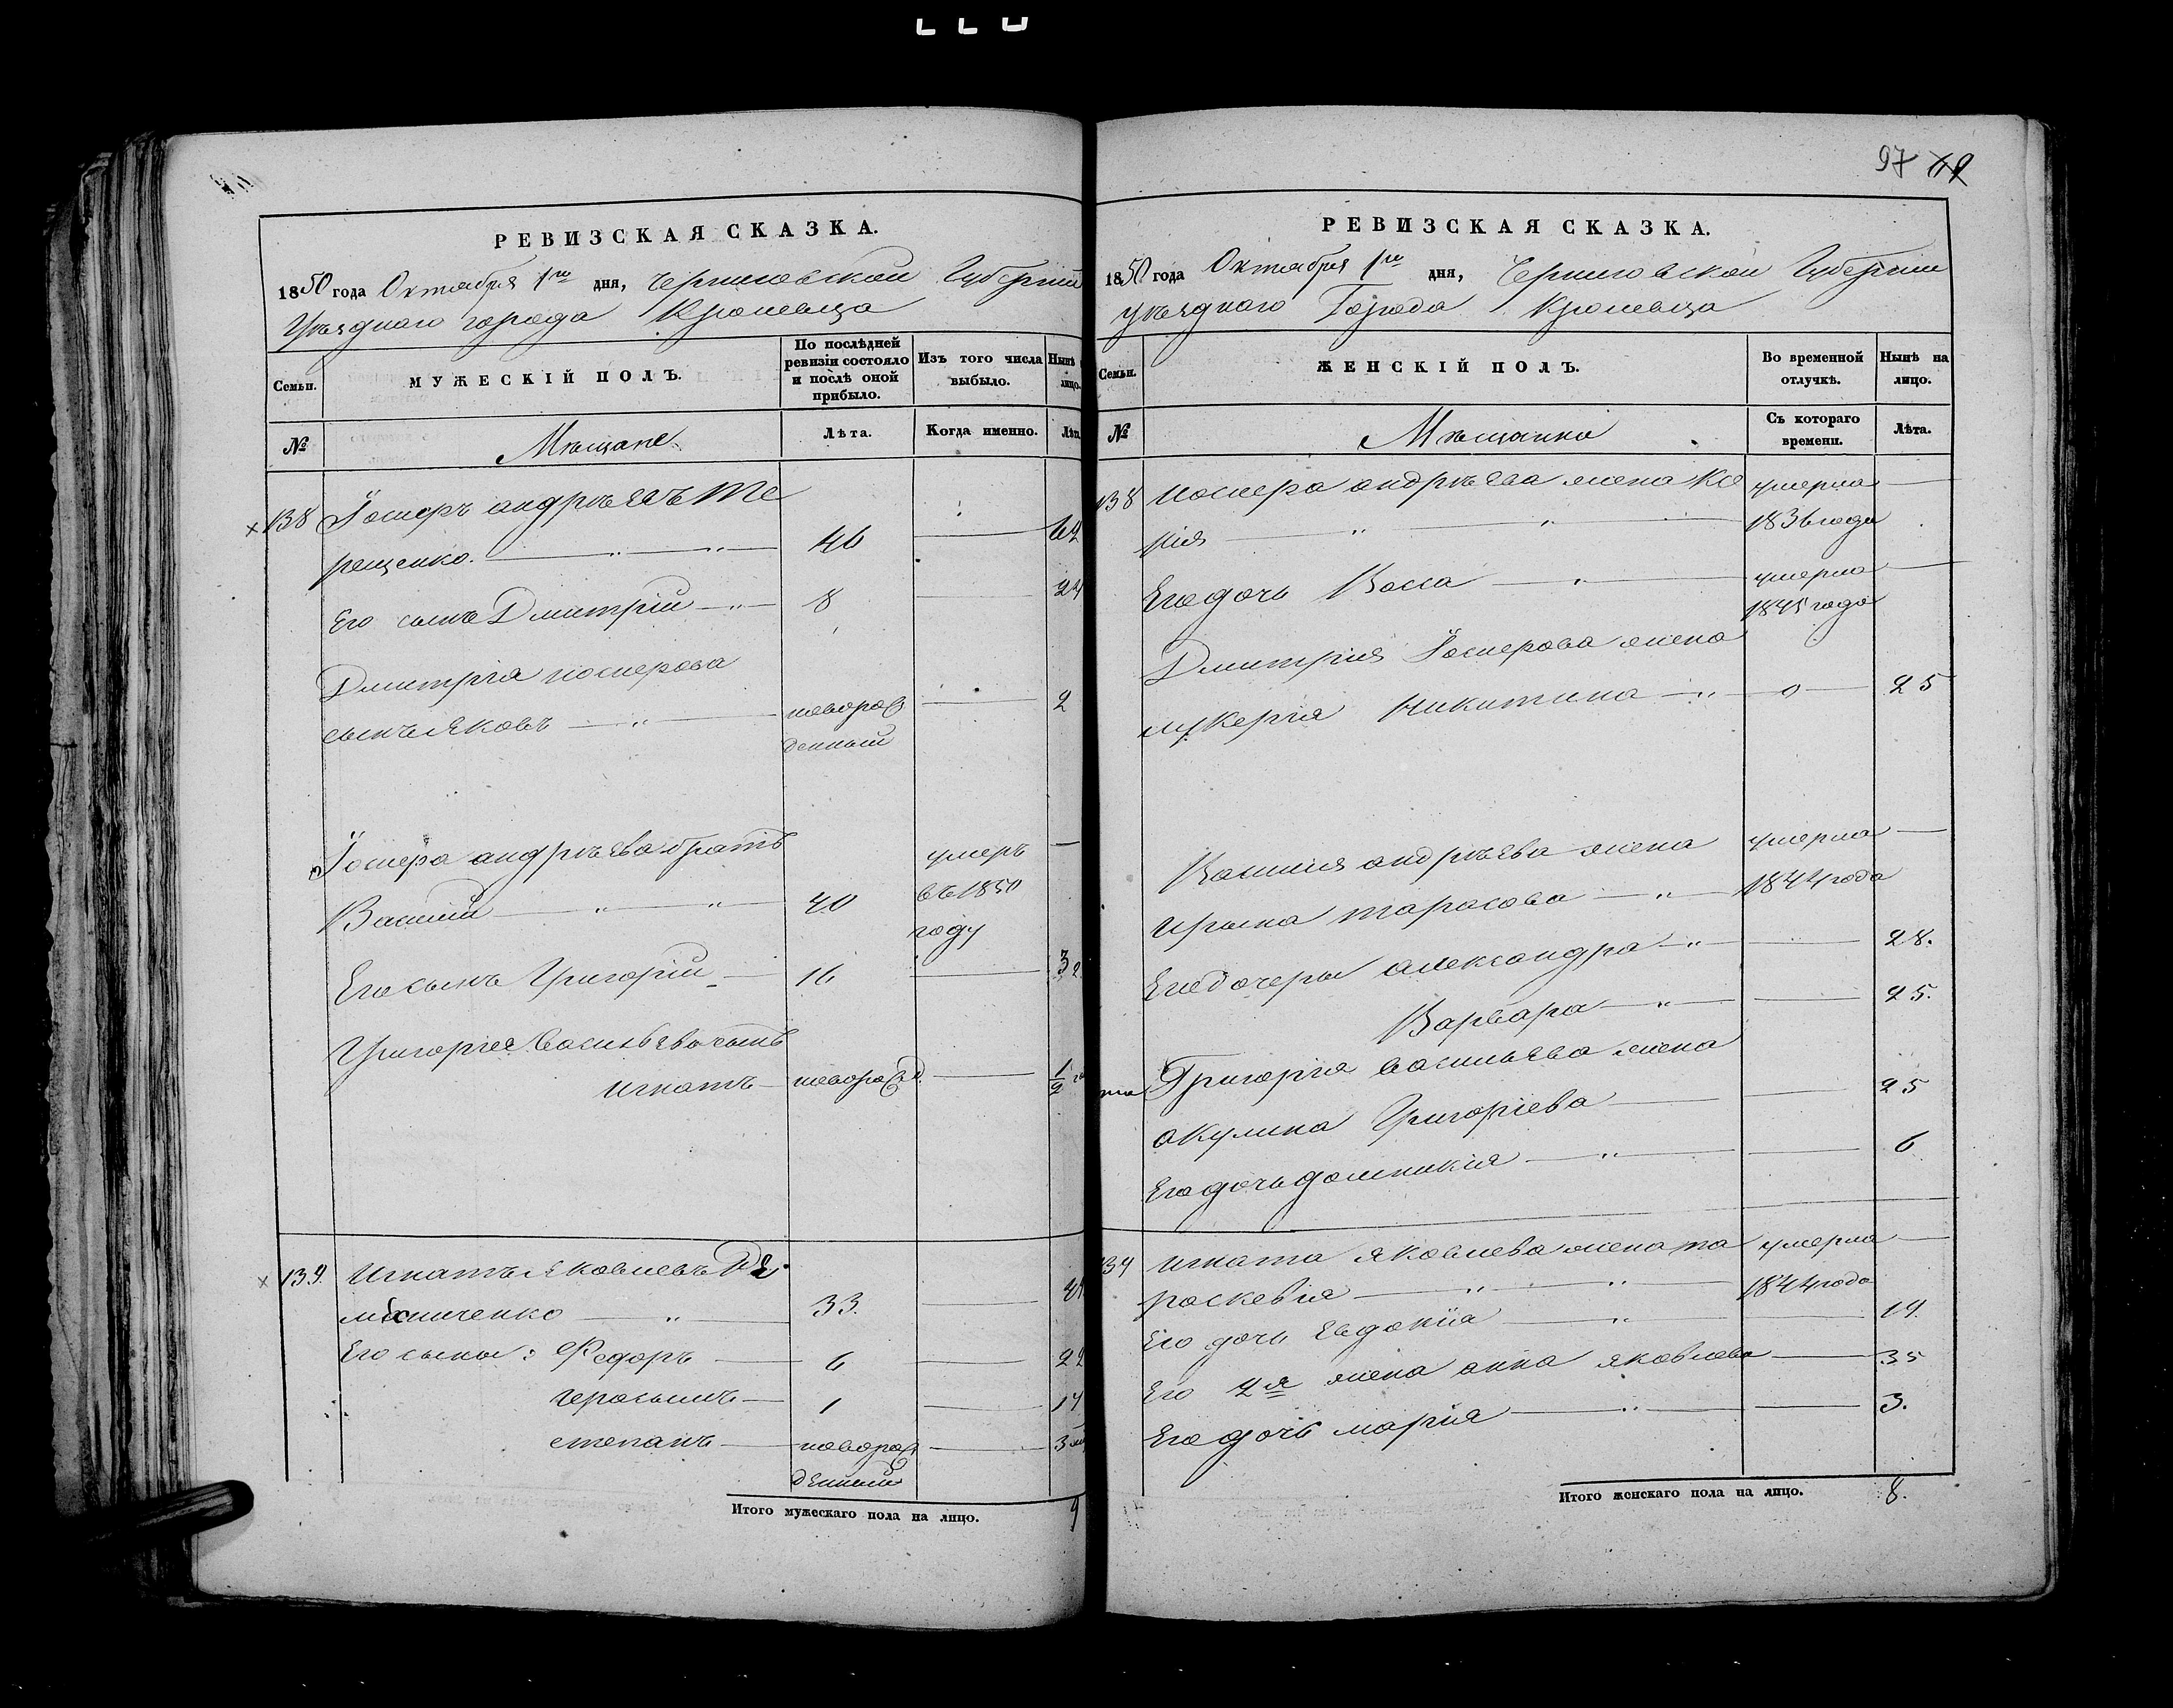 97
РЕВИЗСКАЯ СКАЗКА.
1850 года Октября 1го дня, Черниговской Губерніи
Уѣзднаго города Кролевца
Семьи.
МУЖЕСКІЙ ПОЛЪ.
По послѣдней ревизіи состояло и послѣ оной прибыло.
Изъ того числа выбыло.
Нынѣ лицо.
№
Мѣщане
Лѣта.
Когда именно.
Лѣт
138 Іосифъ андрѣевъ Те
рещенко. 46 62
Его сынъ Дмитрій 8 24
Дмитрія иосифова
сынъ Яковъ новорож 2
денный
Іосифа андрѣева братъ умеръ
Василій 40 въ 1850
году
Его сынъ Григорій 16 32
Григорія васильева сынъ
игнатъ новорожд. 1/2 го
139. Игнатъ Яковлевъ
33.
Его сыны: Федоръ 6 22
герасимъ 1 17
степанъ новорож 3
денный
Итого мужескаго пола на лицо. 9
РЕВИЗСКАЯ СКАЗКА.
1850 года Октября 1го дня, Черниговской Губерніи
уѣзднаго Города Кролевца
Семьи.
ЖЕНСКІЙ ПОЛЪ.
Во временной отлучкѣ.
Нынѣ на лицо.
№
Мѣщанки
Съ котораго времени.
Лѣта.
138 иосифа андрѣева жена Ма умерла
рія 1836 года
Его дочь Васса умерла
1845 года
Дмитрія Іосифова жена
лукерія Никитина 25
Василія андрѣева жена умерла
ирина тарасова 1844 года
Его дочери александра 28.
Варвара 25.
Григорія васильева жена
акулина Григоріева 25
Его дочь домникія 6
139 игната яковлева жена па умерла
раскевія 1844 года
Его дочь Евдокія 19.
Его 2я жена анна яковлева 35
Его дочь марія 3.
Итого женскаго пола на лицо. 8.